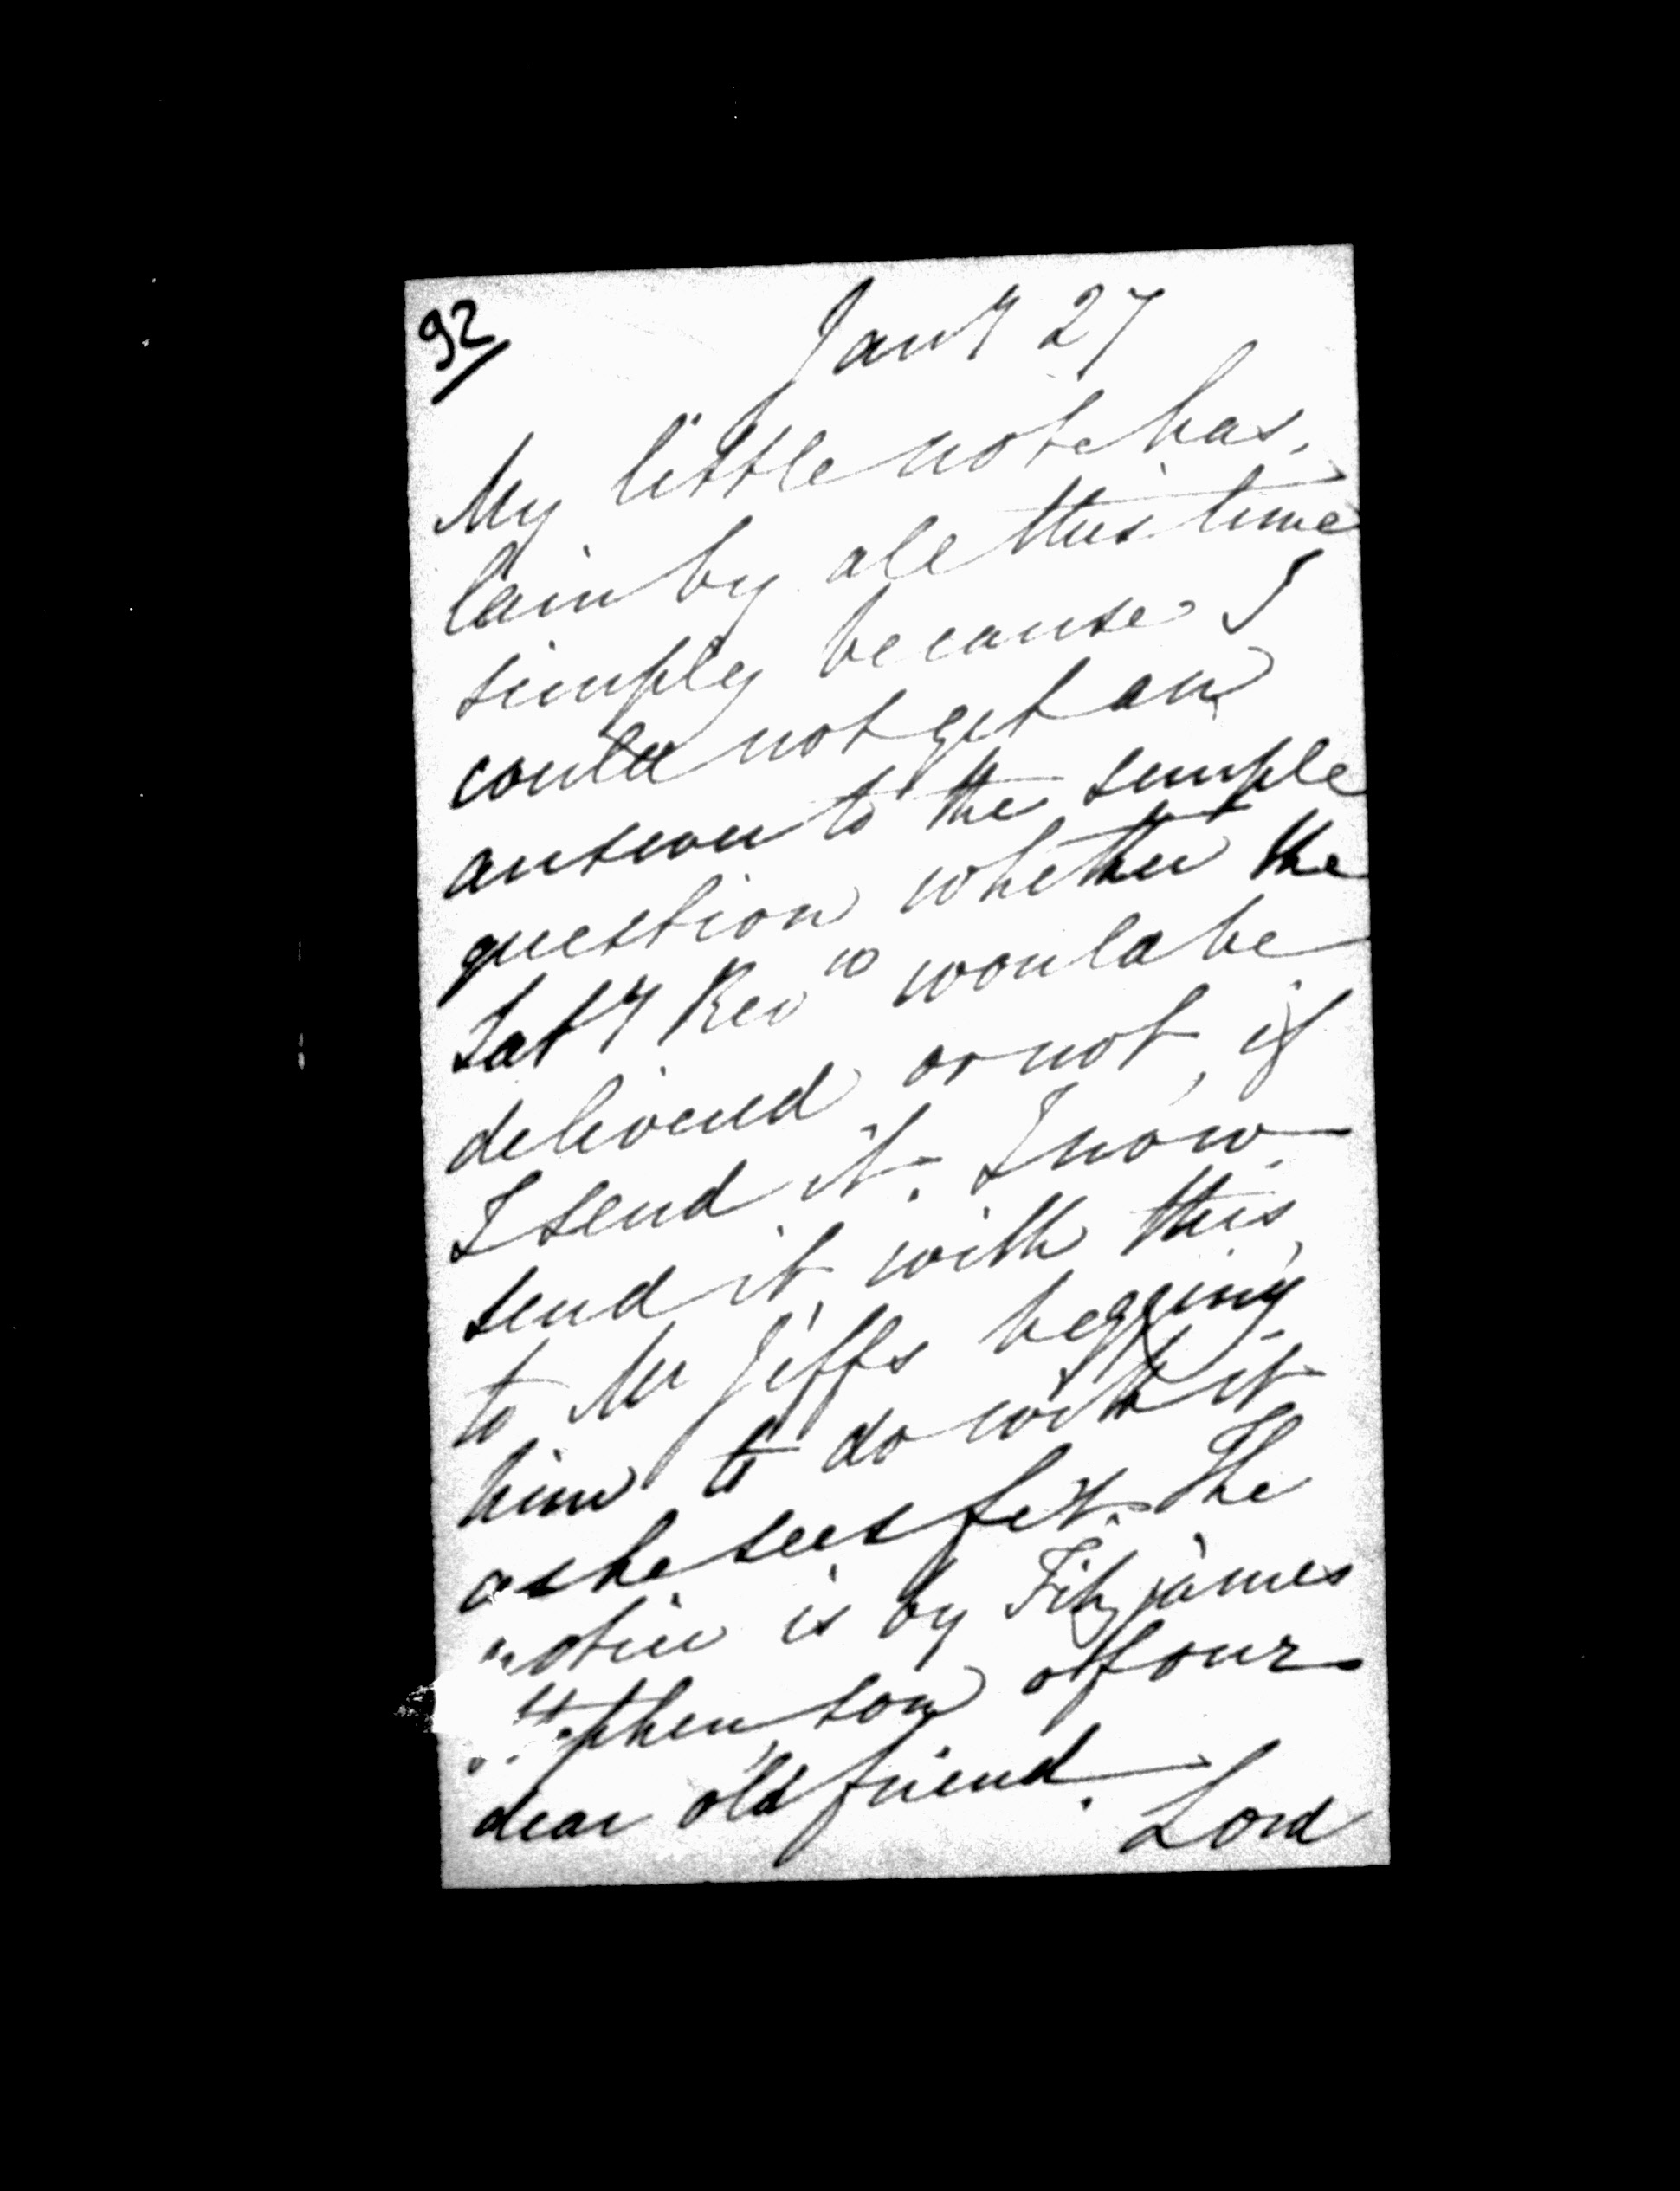 92
Jany 27
My little note has
lain by all this time
simply because I
could not get an
answer to the simple
question whether the
Saty Revw would be
delivered or not, if
I send it. I now
send it with this,
to Mr Jeffs begging
him to do with it
as he sees fit. The
notice is by Fitzjames
Stephen son of our
dear old friend.
Lord